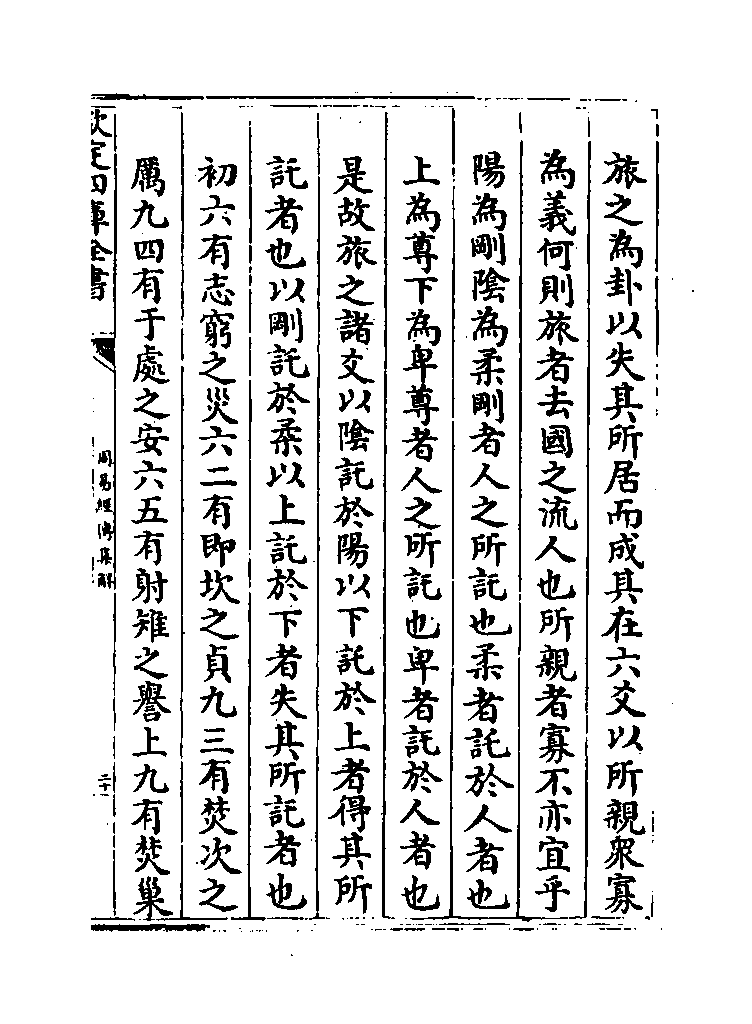 旅之為卦以失其所居而成其在六爻以所親衆寡
為義何則旅者去國之流人也所親者寡不亦宜乎
陽為剛陰為柔剛者人之所託也柔者託於人者也
上為尊下為卑尊者人之所託也卑者託於人者也
是故旅之諸爻以陰託於陽以下託於上者得其所
託者也以剛託於柔以上託於下者失其所託者也
初六有志窮之災六二有即坎之貞九三有焚次之
厲九四有于處之安六五有射雉之譽上九有焚巢
欽定四庫全書
周易經傳集解
二十一